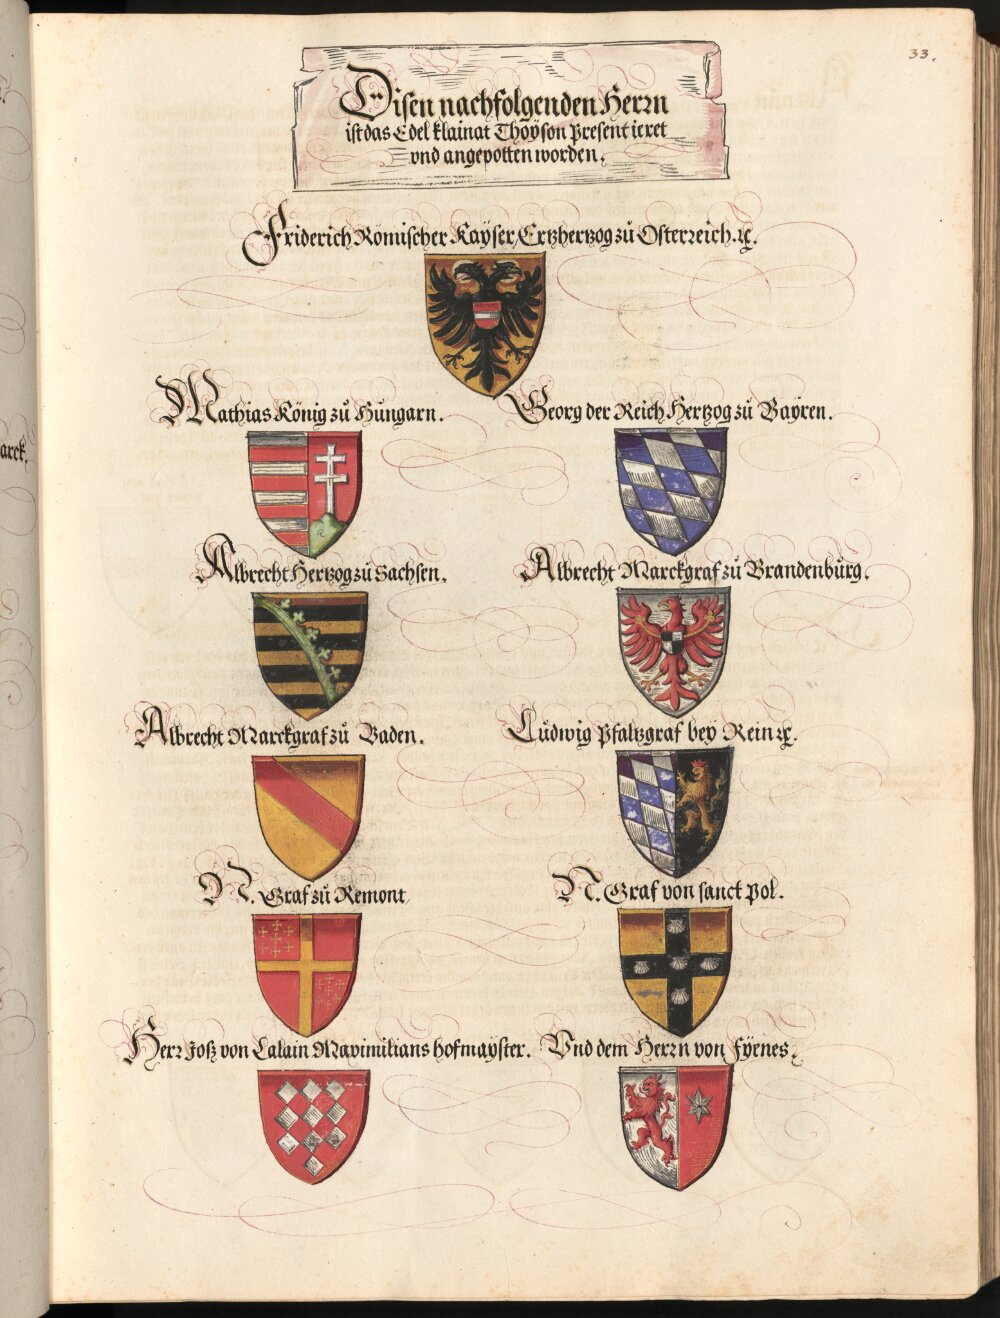 33.
Disen nachfolgenden Herrn
ist das Edel klainat Thoÿson present ieret
vnd angepotten worden.
Friderich Römischer Kaÿser, Ertzhertzog zů Osterreich ꝛc.
Mathias König zů Hungarn.
Georg der Reich Hertzog zů Bayren.
Albrecht Hertzog zů Sachsen.
Albrecht Marckgraf zů Brandenbůrg.
Albrecht Marckgraf zů Baden.
Lůdwig Pfaltzgraf bey Rein ꝛc.
N. Graf zů Remont
N. Graf von sanct Pol.
Herr Joß von Lalain Maximilians hofmaÿster.
Vnd dem Herrn von Fÿenes.
arck.